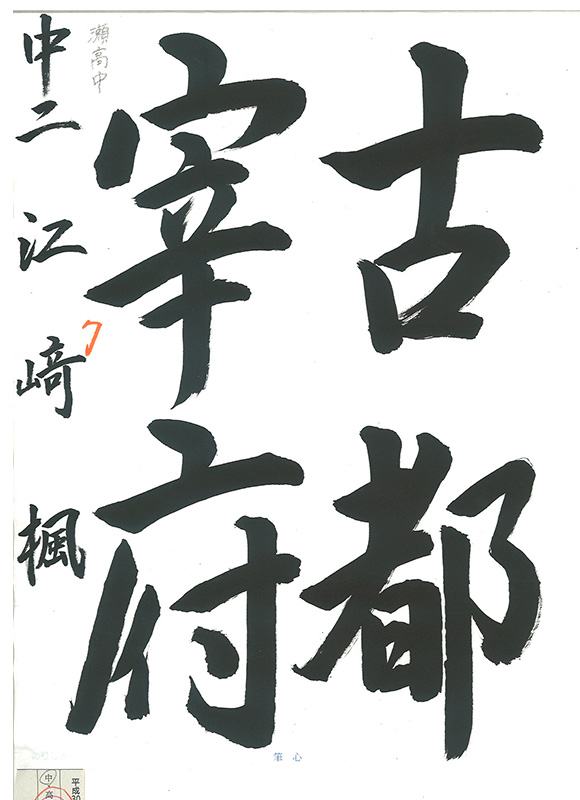 古都
宰府
中二 江﨑 楓
瀬高中
ク
筆心
平成30
中
高